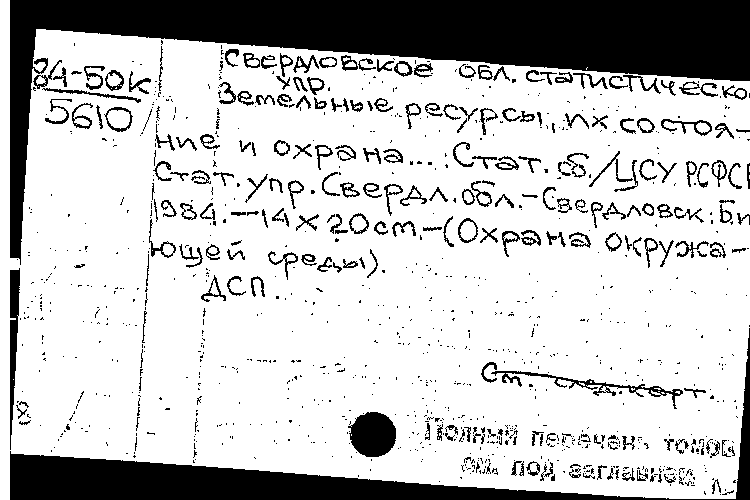 84-50к
5610
Свердловское обл. статистическо
упр.
Земельные ресурсы, их состоя-
ние и охрана... : Стат. сб. / ЦСУ РСФСР
Стат. упр. Свердл. обл. - Свердловск : Би
1984. - 14 х 20 см. - (Охрана окружа-
ющей среды).
ДСП.
См. след. карт.
8
Полный перечень томов
см. под заглавием